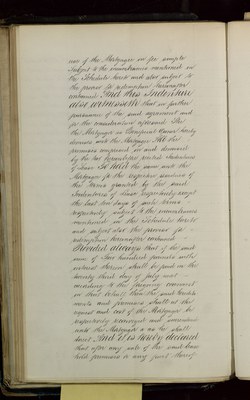 use of the Mortgagee in fee simple
Subject to the incumbrances mentioned in
the Schedule hereto and also subject to
the proviso for redemption hereinafter
contained And this Indenture
also witnesseth that in further
pursuance of the said agreement and
for the consideration aforesaid the
the Mortgagor as Beneficial Owner hereby
demises unto the Mortgagee All the
premises comprised in and demised
by the two hereinbefore recited Indentures
of Lease To hold the same unto the
Mortgagee for the respective residues of
the terms granted by the said
Indentures of Lease respectively except
the last two days of such terms
respectively subject to the incumbrances
mentioned in the Schedule hereto
and subject also the proviso for
redemption hereinafter contained
Provided always that if the said
sum of five hundred pounds with
interest thereon shall be paid on the
twenty third day of July next
according to the foregoing covenant
in that behalf then the said heredita
ments and premises shall at the
request and cost of the Mortgagor be
respectively reconveyed and surrendered
unto the Mortgagor or as he shall
direct And it is hereby declared
that after any sale of the said lease
hold premises or any part thereof